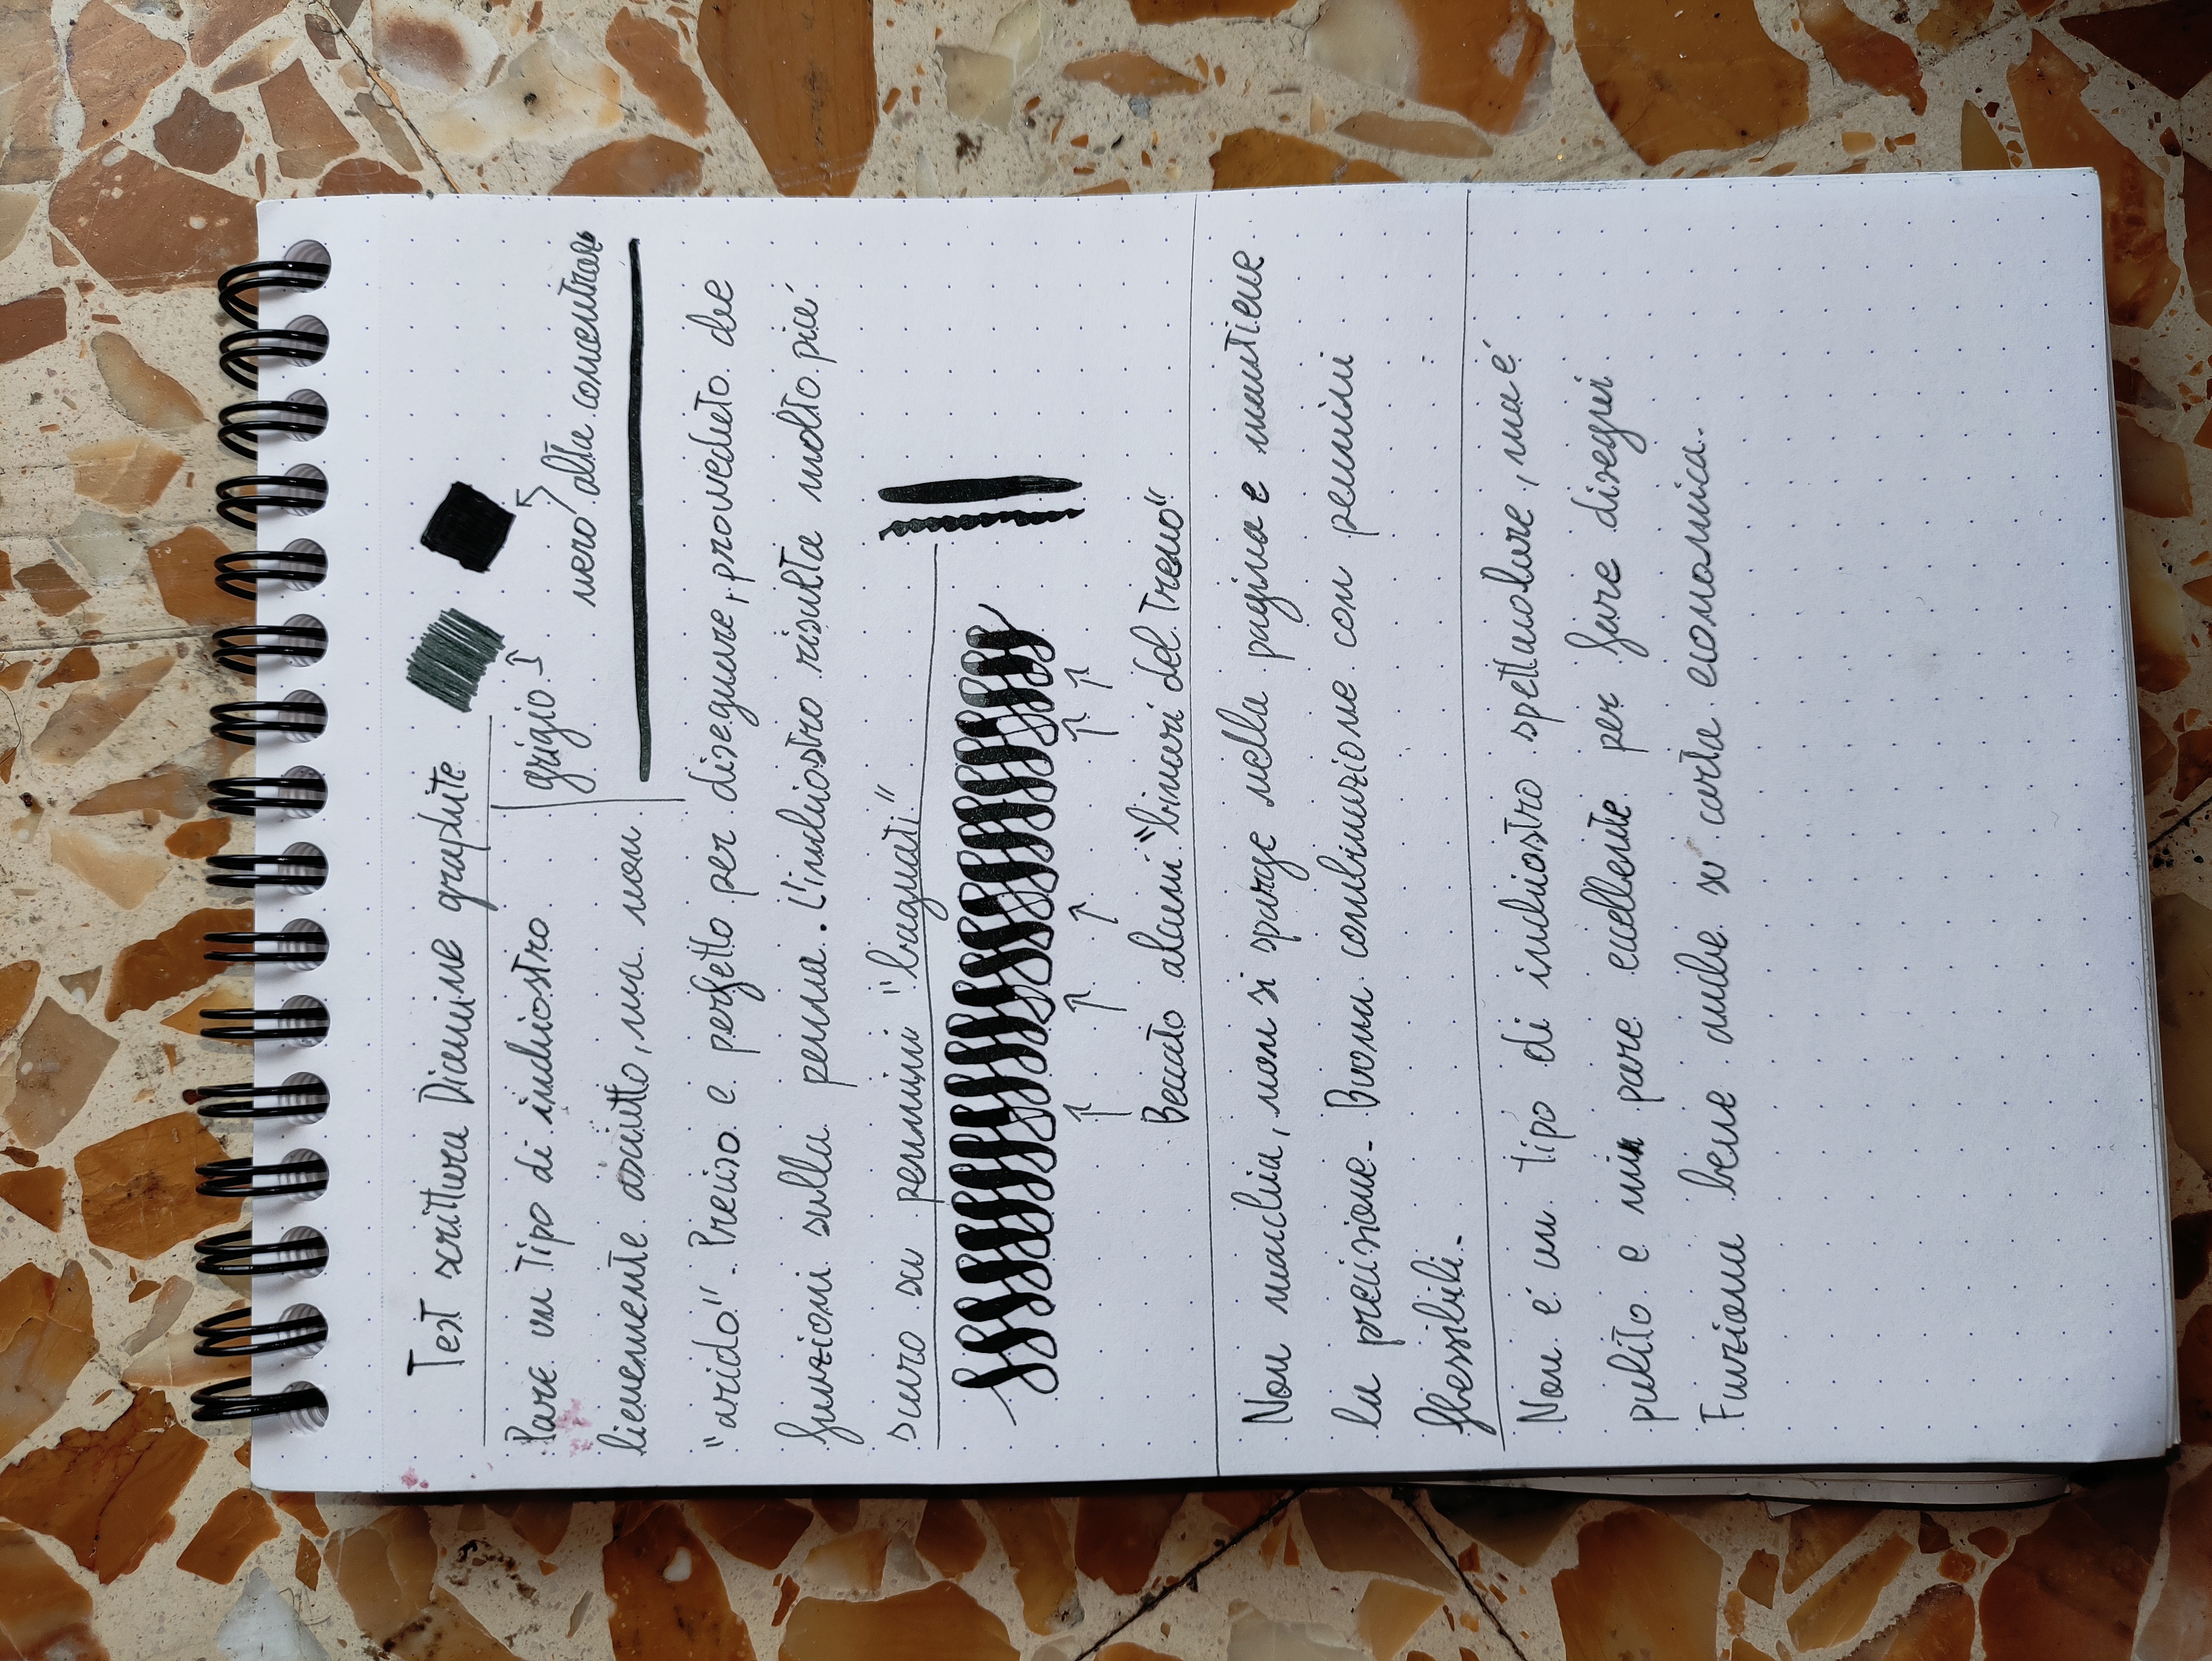 Test scrittura Diamine graphite
Pare un Tipo di inchiostro
grigio
nero alta concentraz
lievemente asciutto, ma non
"arido". Preciso e perfetto per disegnare, provveduto che
funzioni sulla penna. L'inchiostro risulta molto più
scuro su pennini "bagnati"
Beccato alcuni "binari del Treno"
Non macchia, non si sparge nella pagina e mantiene
la precisione. Buona combinazione con pennini
flessibili.
Non é un tipo di inchiostro spettacolare, ma é
pulito e mi pare eccellente per fare disegni
Funziona bene anche su carta economica.